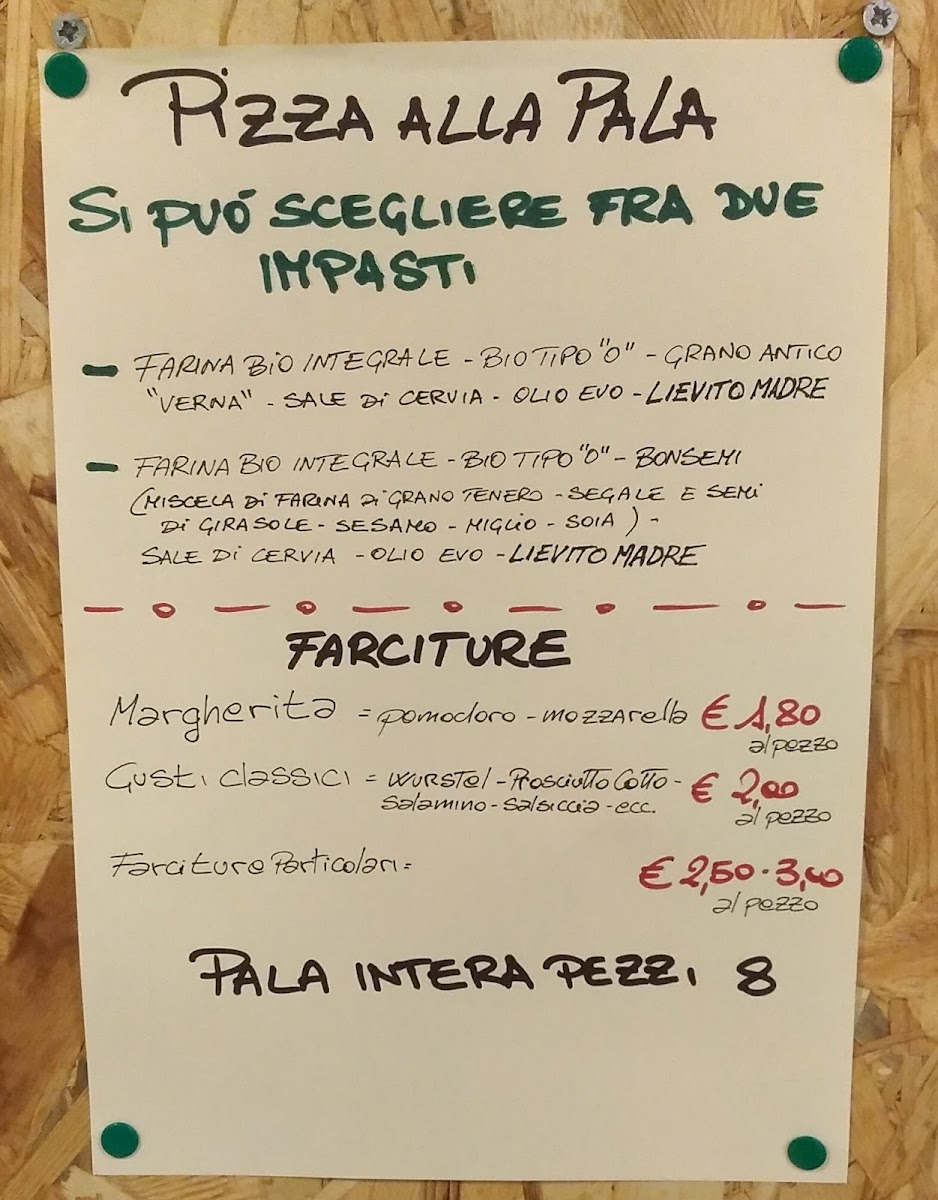 PIZZA ALLA PALA
SI PUÓ SCEGLIERE FRA DUE
IMPASTI
- FARINA BIO INTEGRALE - BIO TIPO "O" - GRANO ANTICO
"VERNA" - SALE DI CERVIA - OLIO EVO - LIEVITO MADRE
- FARINA BIO INTEGRALE - BIO TIPO "O" - BONSEMI
(MISCELA DI FARINA DI GRANO TENERO - SEGALE E SEMI
DI GIRASOLE - SESAMO - MIGLIO - SOIA ) -
SALE DI CERVIA - OLIO EVO - LIEVITO MADRE
FARCITURE
Margherita = pomodoro - mozzarella € 1,80
al pezzo
Gusti classici = wurstel - Prosciutto Cotto - € 2,00
salamino - salsiccia - ecc. al pezzo
Farciture Particolari = € 2,50 - 3,00
al pezzo
PALA INTERA PEZZI 8